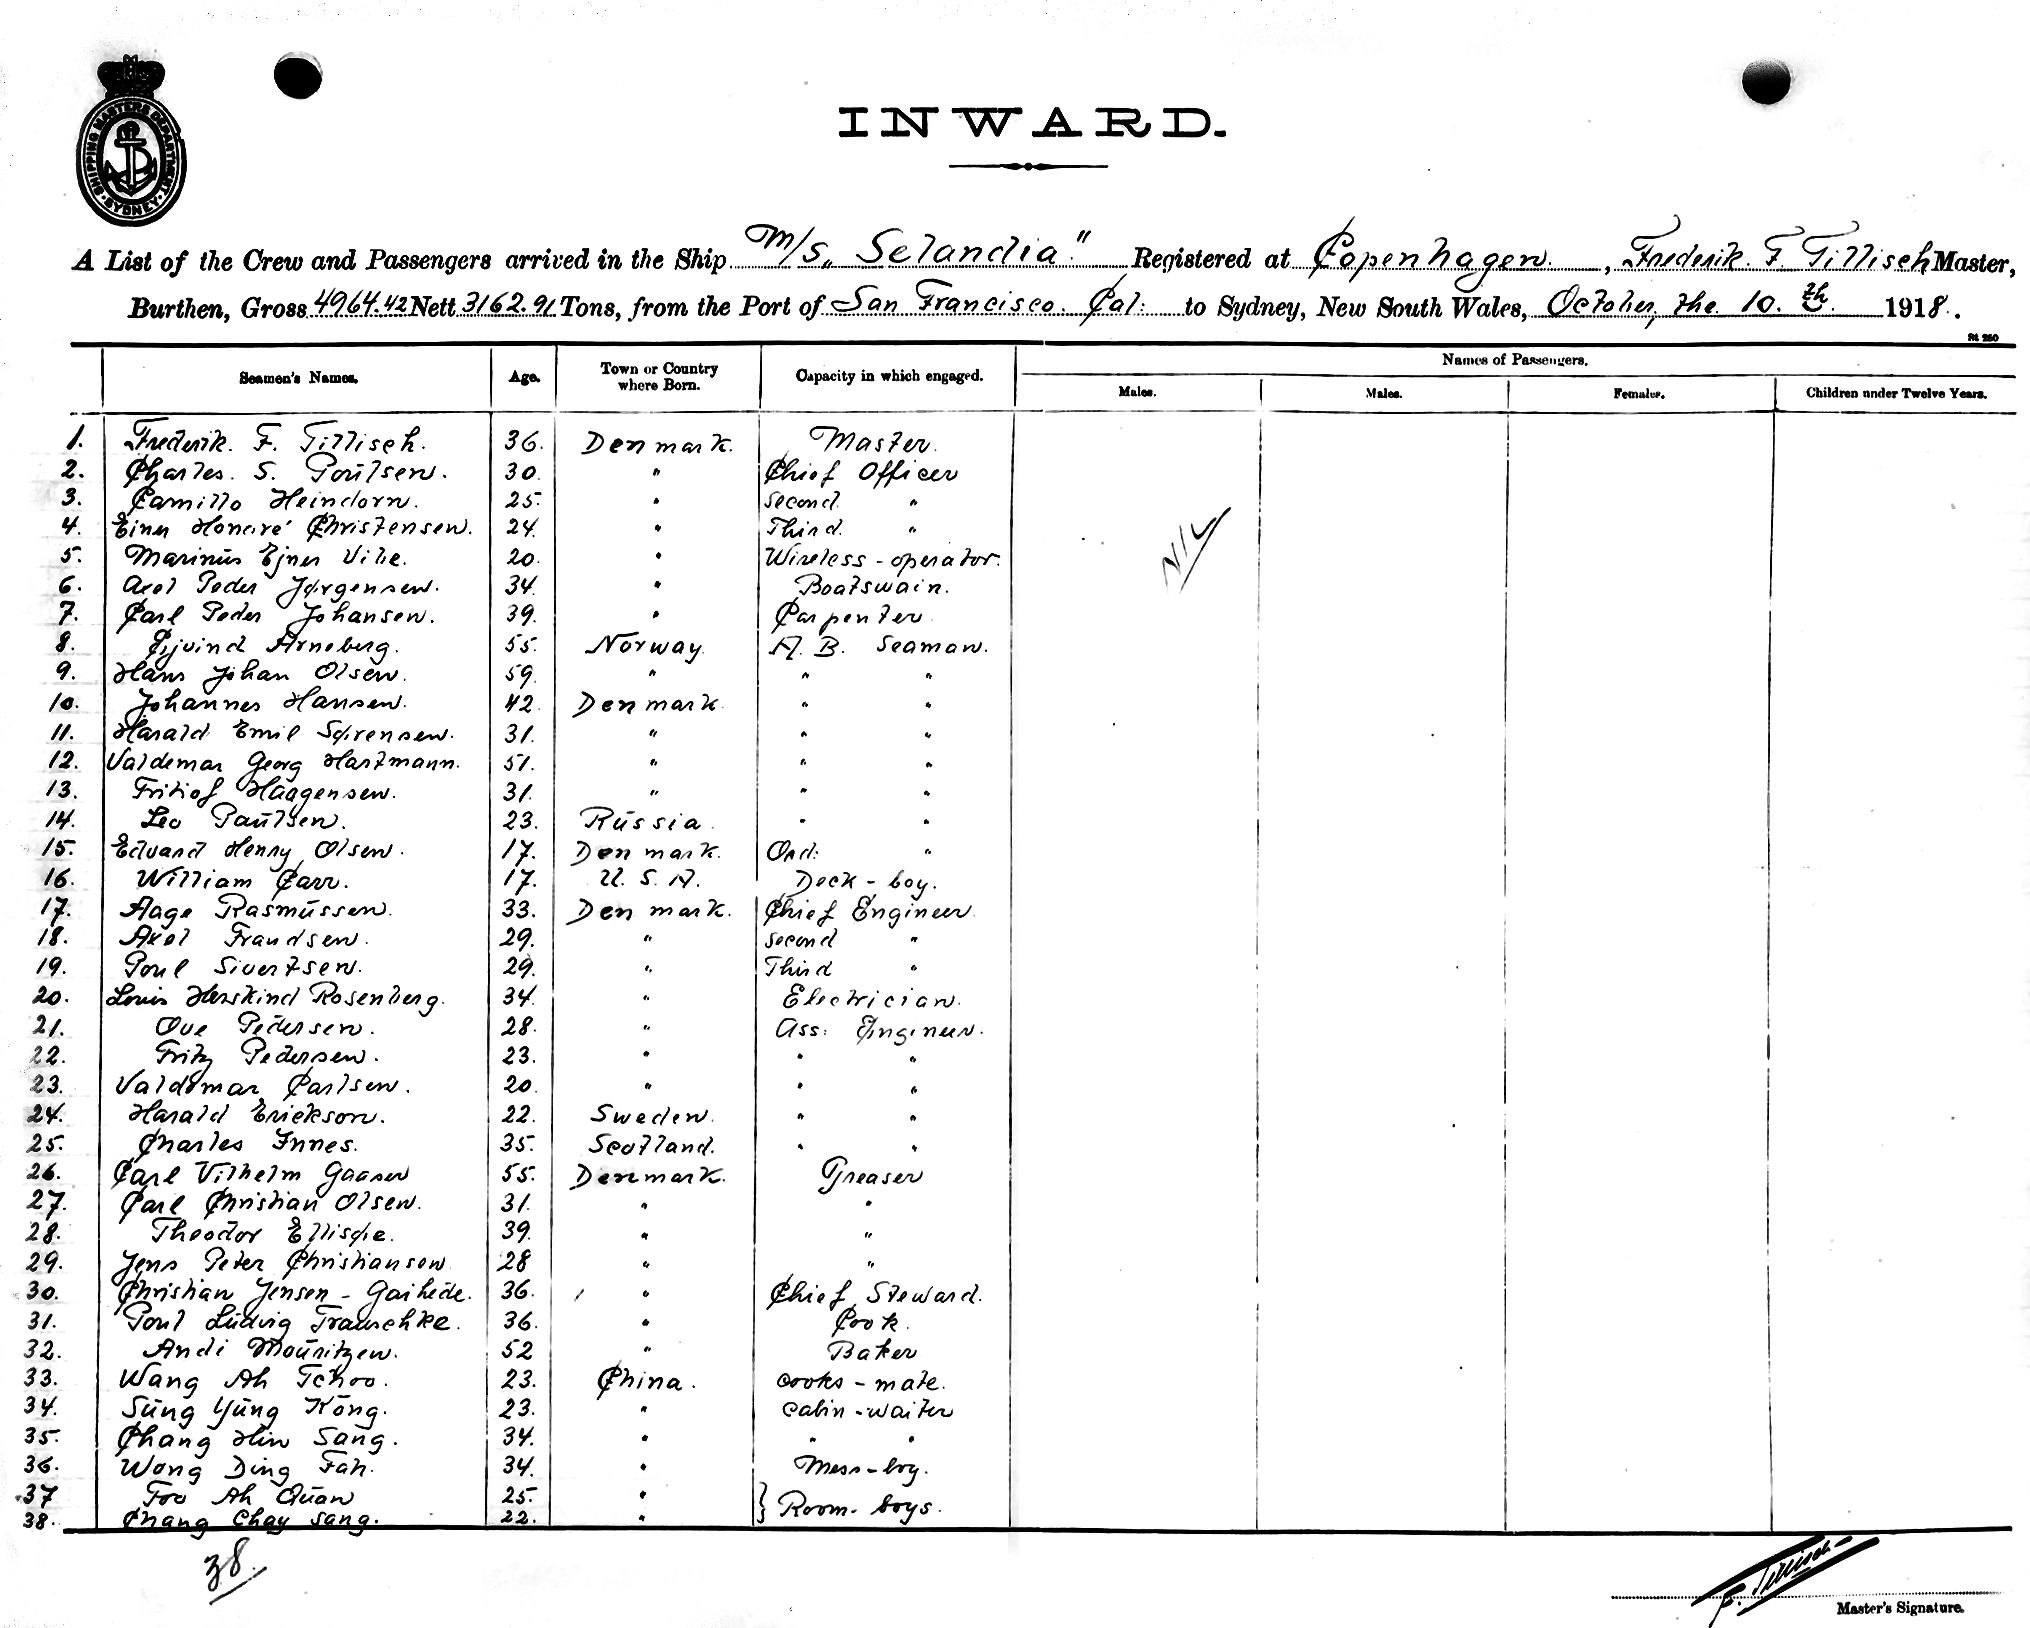 SHIPPING MASTERS DEPARTMENT
SYDNEY
INWARD.
A List of the Crew and Passengers arrived in the Ship M/S „Selandia" Registered at Copenhagen. , Frederik. F. Tillisch Master,
Burthen, Gross 4964.42 Nett 3162.91 Tons, from the Port of San Francisco. Cal: to Sydney, New South Wales, October, the 10.th 1918.
St 250
Seamen's Names. Age. Town or Country where Born. Capacity in which engaged. Names of Passengers.
Males. Males. Females. Children under Twelve Years.
1. Frederik. F. Tillisch. 36. Denmark. Master.
2. Charles. S. Poulsen. 30. " Chief Officer
3. Camillo Heindorn. 25. " Second "
4. Einer Honoré Christensen. 24. " Third. "
5. Marinus Ejner Vibe. 20. " Wireless-operator.
6. Axel Peder Jørgensen. 34. " Boatswain.
7. Carl Peder Johansen. 39. " Carpenter
8. Ejvind Arneberg. 55. Norway A. B. Seaman.
9. Hans Johan Olsen. 59. " " "
10. Johannes Hansen. 42. Denmark " "
11. Harald Emil Sørensen. 31. " " "
12. Valdemar Georg Hartmann. 51. " " "
13. Fritiof Haagensen. 31. " " "
14. Leo Paulsen. 23. Russia " "
15. Edvard Henry Olsen. 17. Denmark. Ord: "
16. William Carr. 17. U. S. A. Deck-boy.
17. Aage Rasmussen. 33. Denmark. Chief Engineer
18. Axel Frandsen. 29. " Second "
19. Poul Sivertsen. 29. " Third "
20. Louis Herskind Rosenberg. 34. " Electrician.
21. Ove Pedersen. 28. " Ass: Engineer.
22. Fritz Pedersen. 23. " " "
23. Valdemar Carlsen. 20. " " "
24. Harald Erickson. 22. Sweden. " "
25. Charles Innes. 35. Scotland. " "
26. Carl Vilhelm Gaaser 55. Denmark. Greaser
27. Carl Christian Olsen. 31. " "
28. Theodor Ellisøe. 39. " "
29. Jens Peter Christiansen 28 " "
30. Christian Jensen-Gaihede. 36. " Chief Steward.
31. Poul Ludvig Frauschke. 36. " Cook.
32. Andi Mouritzen. 52 " Baker
33. Wang Ah Tchoo. 23. China. cooks-mate.
34. Sung Yung Kong. 23. " cabin-waiter
35. Chang Hin Sang. 34. " " "
36. Wong Ding Fah. 34. " Mess-boy.
37 Foo Ah Quan 25. " } Room-boys.
38. Chang Chay Sang. 22. "
NIL
38.
F. Tillisch
Master's Signature.